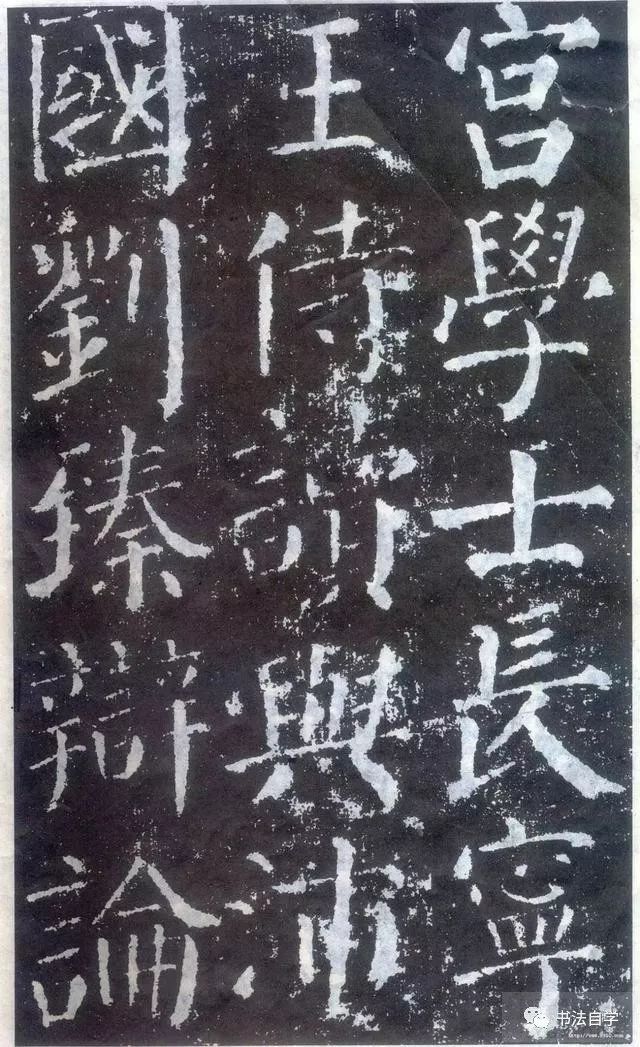 宮學士長寧
王侍讀與沛
國劉臻辯論
书法自学